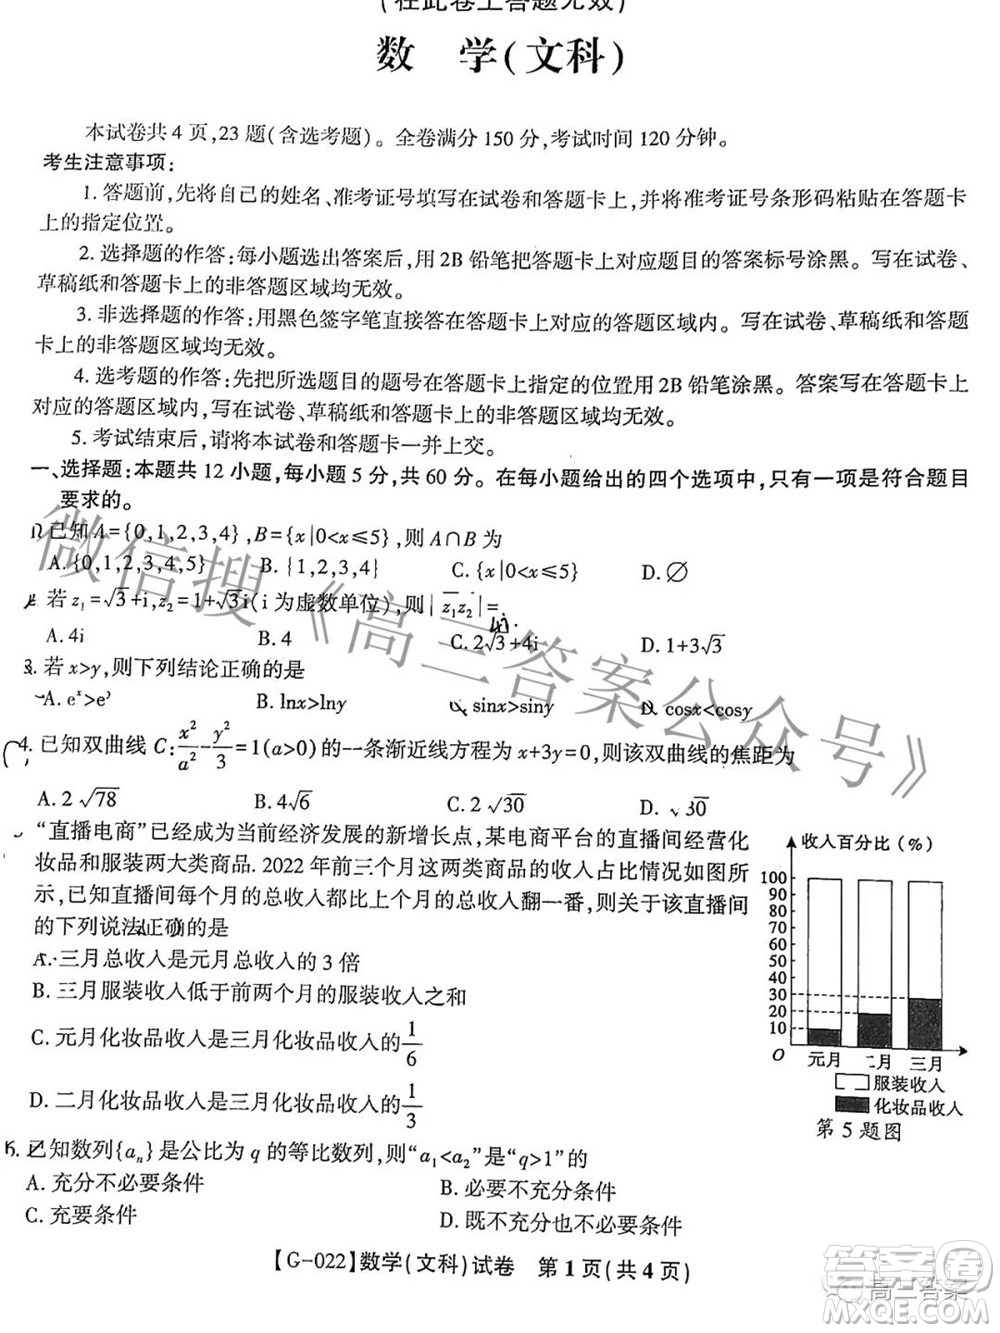 (在此卷上答题无效)
数 学(文科)
本试卷共4页,23题(含选考题)。全卷满分150分,考试时间120分钟。
考生注意事项:
1. 答题前,先将自己的姓名、准考证号填写在试卷和答题卡上,并将准考证号条形码粘贴在答题卡
上的指定位置。
2. 选择题的作答:每小题选出答案后,用2B铅笔把答题卡上对应题目的答案标号涂黑。写在试卷、
草稿纸和答题卡上的非答题区域均无效。
3. 非选择题的作答:用黑色签字笔直接答在答题卡上对应的答题区域内。写在试卷、草稿纸和答题
卡上的非答题区域均无效。
4. 选考题的作答:先把所选题目的题号在答题卡上指定的位置用2B铅笔涂黑。答案写在答题卡上
对应的答题区域内,写在试卷、草稿纸和答题卡上的非答题区域均无效。
5. 考试结束后,请将本试卷和答题卡一并上交。
一、选择题:本题共12小题,每小题5分,共60分。在每小题给出的四个选项中,只有一项是符合题目
要求的。
已知A={0,1,2,3,4},B={x|0<x≤5},则A∩B为
A. {0,1,2,3,4,5} B. {1,2,3,4} C. {x|0<x≤5} D. ∅
若z₁=√3+i,z₂=1+√3i(i为虚数单位),则|z₁z₂|=
A. 4i B. 4 C. 2√3+4i D. 1+3√3
3. 若x>y,则下列结论正确的是
A. eˣ>eʸ B. lnx>lny sinx>siny cosx<cosy
4. 已知双曲线C:x²/a²-y²/3=1(a>0)的一条渐近线方程为x+3y=0,则该双曲线的焦距为
A. 2√78 B. 4√6 C. 2√30 D. √30
“直播电商”已经成为当前经济发展的新增长点,某电商平台的直播间经营化
妆品和服装两大类商品. 2022年前三个月这两类商品的收入占比情况如图所
示,已知直播间每个月的总收入都比上个月的总收入翻一番,则关于该直播间
的下列说法正确的是
A. 三月总收入是元月总收入的3倍
B. 三月服装收入低于前两个月的服装收入之和
C. 元月化妆品收入是三月化妆品收入的1/6
D. 二月化妆品收入是三月化妆品收入的1/3
收入百分比(%)
100
90
80
70
60
50
40
30
20
10
O 元月 二月 三月
服装收入
化妆品收入
第5题图
6. 已知数列{aₙ}是公比为q的等比数列,则“a₁<a₂”是“q>1”的
A. 充分不必要条件 B. 必要不充分条件
C. 充要条件 D. 既不充分也不必要条件
【G-022】数学(文科)试卷 第1页(共4页)
微信搜《高三答案公众号》
答案圈
高三答案
MXQE.COM